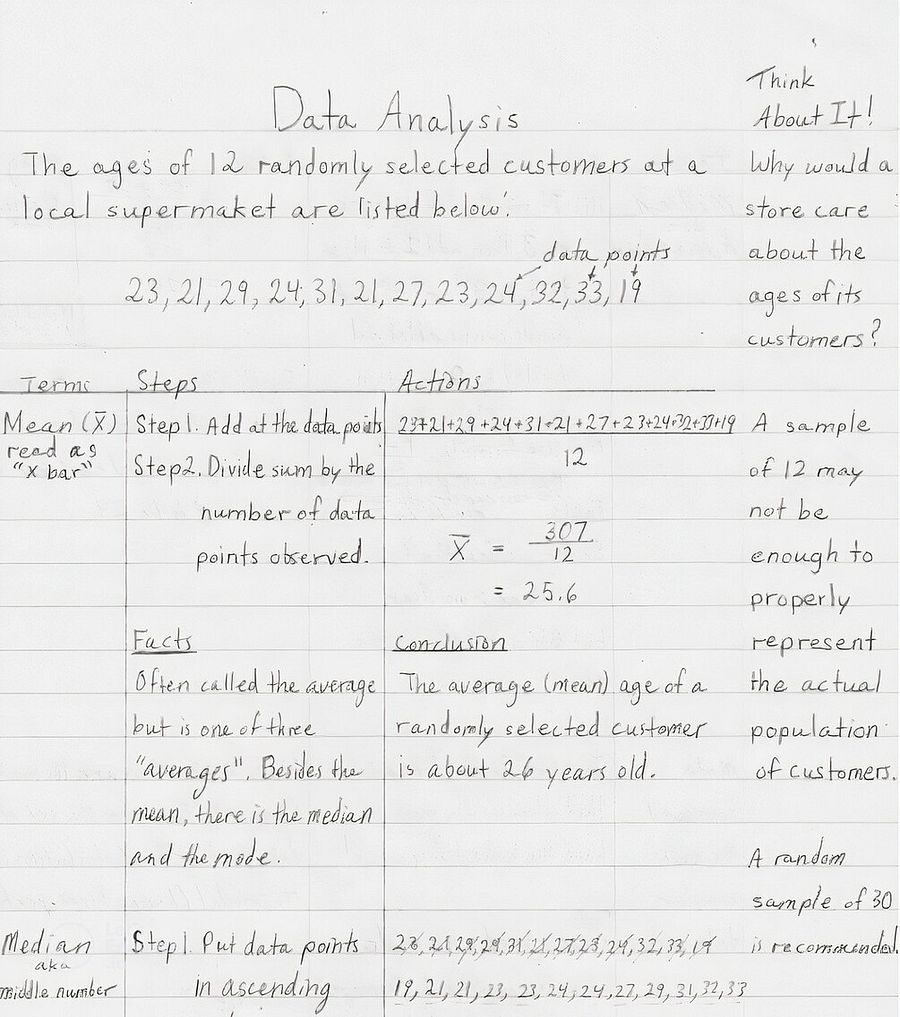 Data Analysis
The ages of 12 randomly selected customers at a
local supermaket are listed below:
data points
23, 21, 29, 24, 31, 21, 27, 23, 24, 32, 33, 19
Think
About It!
Why would a
store care
about the
ages of its
customers?
Terms Steps Actions
Mean (X̄)
read as
"x bar"
Step 1. Add at the data points
Step 2. Divide sum by the
number of data
points observed.
23+21+29+24+31+21+27+23+24+32+33+19
12
X̄ = 307
12
= 25.6
Facts
Often called the average
but is one of three
"averages". Besides the
mean, there is the median
and the mode.
Conclusion
The average (mean) age of a
randomly selected customer
is about 26 years old.
A sample
of 12 may
not be
enough to
properly
represent
the actual
population
of customers.
A random
sample of 30
is recommended.
Median
aka
middle number
Step 1. Put data points
in ascending
23, 21, 29, 24, 31, 21, 27, 23, 24, 32, 33, 19
19, 21, 21, 23, 23, 24, 24, 27, 29, 31, 32, 33